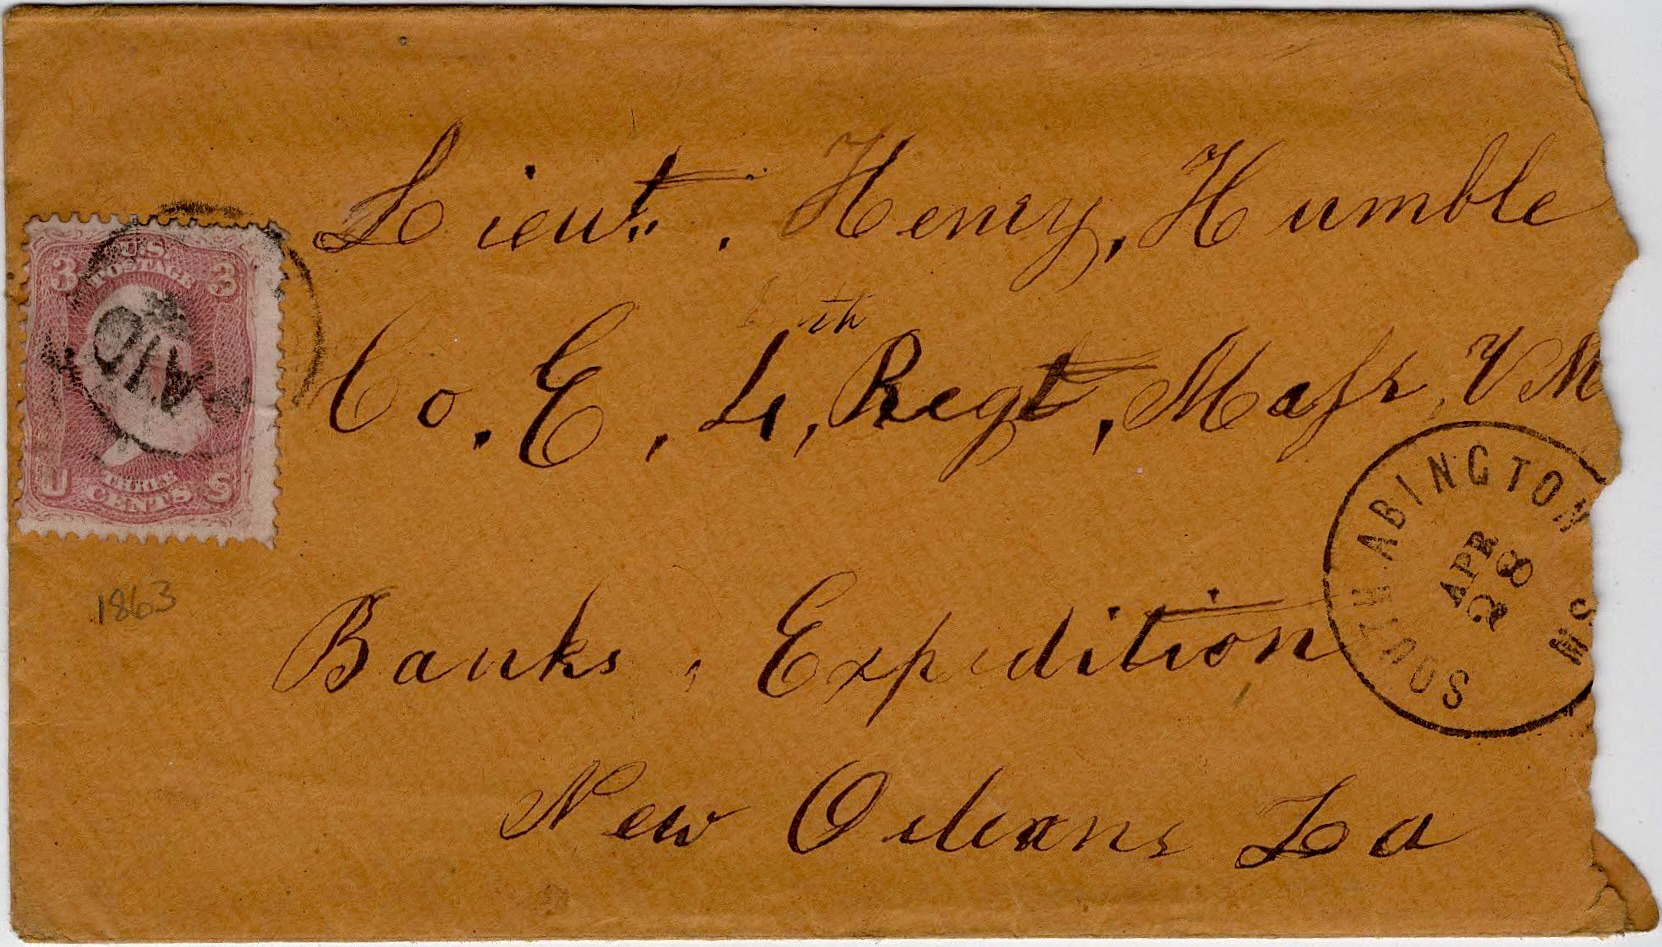 Lieut. Henry, Humble
Co. E, 4th, Regt, Mass, V M
Banks, Expedition
New Orleans La
3 U.S. POSTAGE 3
U THREE CENTS S
PAID
1863
SOUTH ABINGTON MS
APR
28